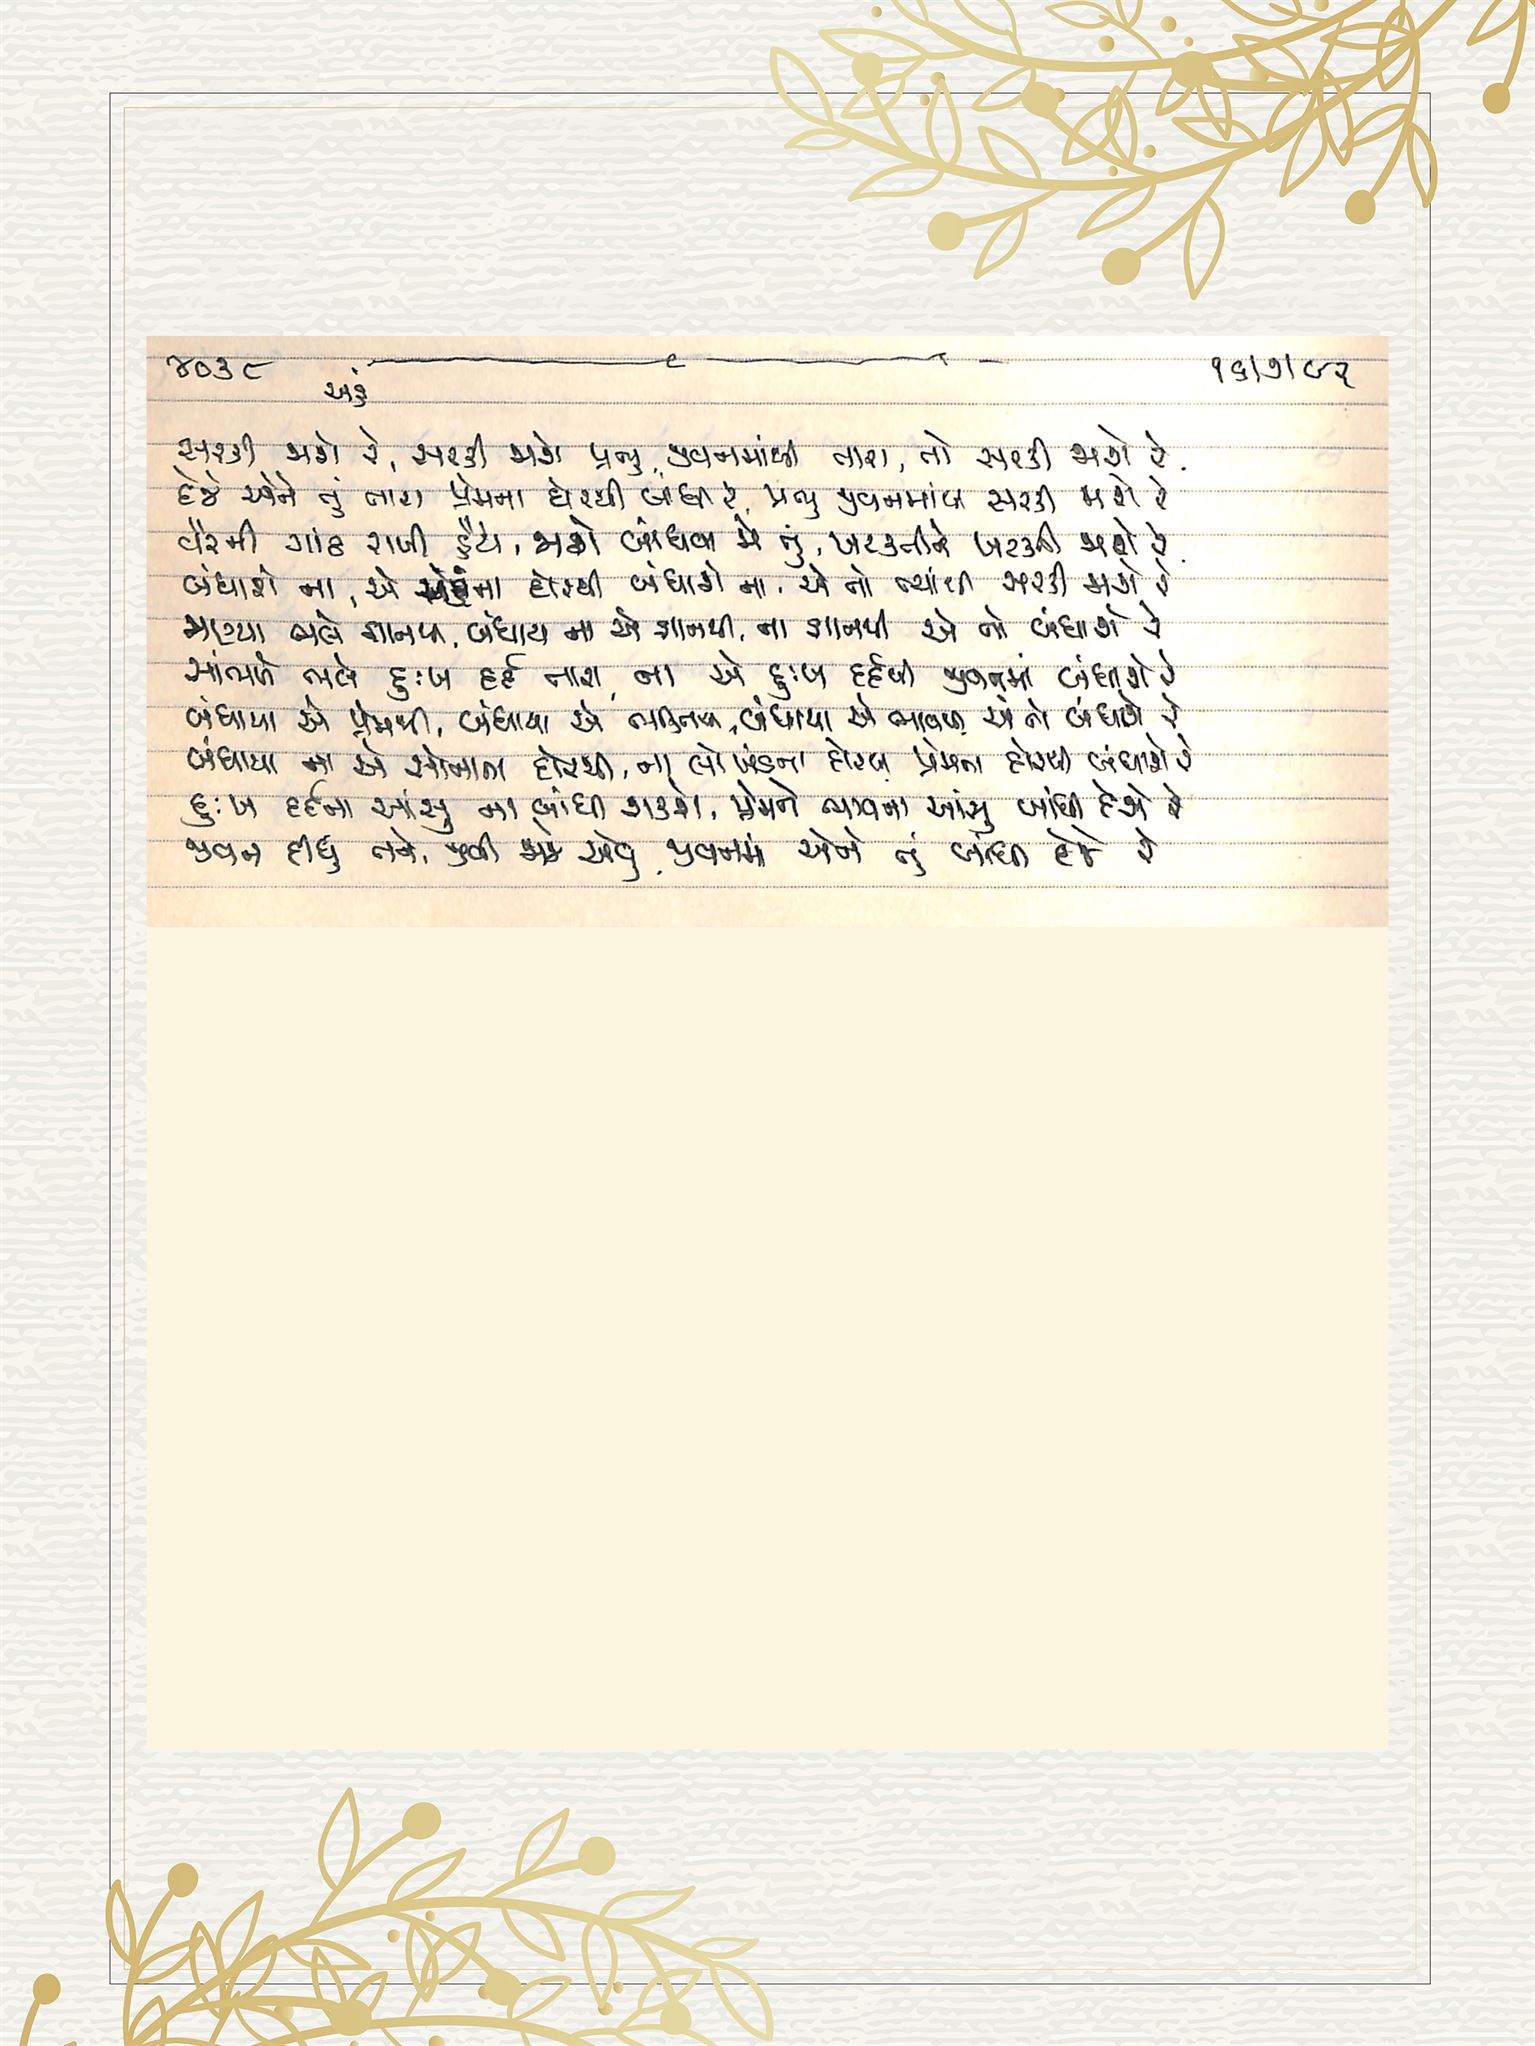 ૪૦૩૯ ૧૬/૭/૯૨
સરકી જાશે રે, સરકી જાશે પ્રભુ, જીવનમાંથી તારા, તો સરકી જાશે રે.
દેજે એને તું તારા પ્રેમના દોરથી બાંધી રે, પ્રભુ જીવનમાંથી સરકી જાશે રે
વેરની ગાંઠ રાખી હૈયે, જાશે બાંધવા જે તું, ખટકીને ખટકી જાશે રે.
બંધાશે ના, એ ના દોરથી બંધાશે ના, એ તો ત્યાંથી સરકી જાશે રે
જાણ્યા ભલે જ્ઞાનથી, બંધાય ના એ જ્ઞાનથી, ના જ્ઞાનથી એ તો બંધાશે રે
સાંભળે ભલે દુઃખ દર્દ તારા, ના એ દુઃખ દર્દથી જીવનમાં બંધાશે રે
બંધાયા એ પ્રેમથી, બંધાયા એ ભક્તિથી, બંધાયા એ ભાવથી, એ તો બંધાશે રે
બંધાયા ના એ સોનાના દોરથી, ના લોખંડના દોરથી, પ્રેમના દોરથી બંધાશે રે
દુઃખ દર્દના આંસુ ના બાંધી શકશે, પ્રેમને ભાવના આંસુ બાંધી દેશે રે
જીવન દીધું તને, જીવી જાજે એવું, જીવનમાં એને તું બાંધી દેજે રે